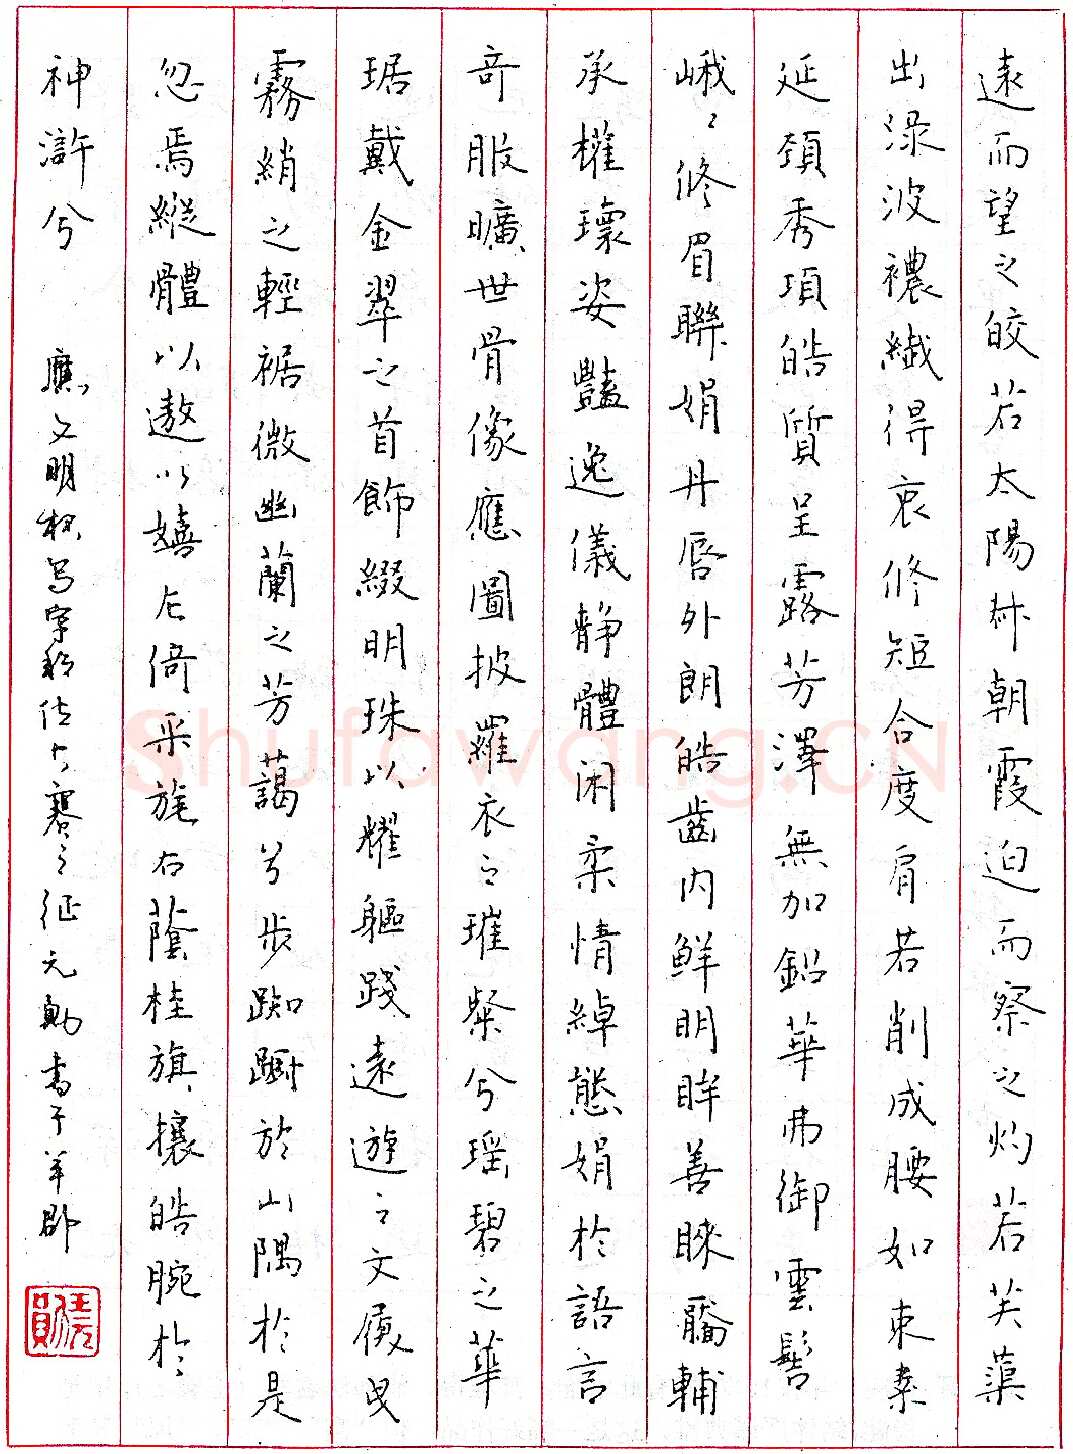 遠而望之皎若太陽升朝霞迫而察之灼若芙蕖
出淥波襛纖得衷修短合度肩若削成腰如束素
延頸秀項皓質呈露芳澤無加鉛華弗御雲髻
峨〻修眉聯娟丹唇外朗皓齒内鮮明眸善睞靨輔
承權瓌姿豔逸儀静體闲柔情綽態娟於語言
奇服曠世骨像應圖披羅衣之璀粲兮瑶碧之華
琚戴金翠之首飾綴明珠以耀軀踐遠遊之文履曳
霧綃之輕裾微幽蘭之芳藹兮步踟躕於山隅於是
忽焉縱體以遨以嬉左倚采旄右蔭桂旗攘皓腕於
神滸兮 應文明杯写字段位大賽之征元勛書于羊郡
Shufawang.CN